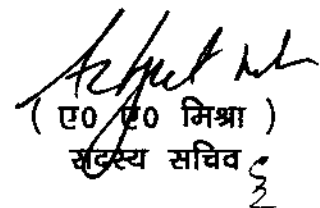 ( ए० ए० मिश्रा )
सदस्य सचिव